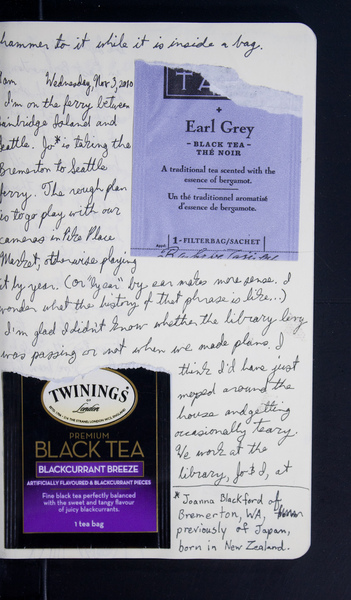 hammer to it while it is inside a bag.
Wednesday, Nov 3, 2010
I'm on the ferry between
Bainbridge Island and
Seattle. Jo* is taking the
Bremerton to Seattle
ferry. The rough plan
is to go play with our
cameras in Pike Place
Market, otherwise playing
it by year. (Or "by ear" by ear makes more sense. I
wonder what the history of that phrase is like...)
I'm glad I didn't know whether the library levy
was passing or not when we made plans. I
think I'd have just
moped around the
house and getting
occasionally teary.
We work at the
library, Jo & I, at
* Joanna Blackford of
Bremerton, WA,
previously of Japan,
born in New Zealand.
TA
Earl Grey
- BLACK TEA -
THÉ NOIR
A traditional tea scented with the
essence of bergamot.
Un thé traditionnel aromatisé
d'essence de bergamote.
1 - FILTERBAG/SACHET
TWININGS
OF
London
PREMIUM
BLACK TEA
BLACKCURRANT BREEZE
ARTIFICIALLY FLAVOURED & BLACKCURRANT PIECES
Fine black tea perfectly balanced
with the sweet and tangy flavour
of juicy blackcurrants.
1 tea bag